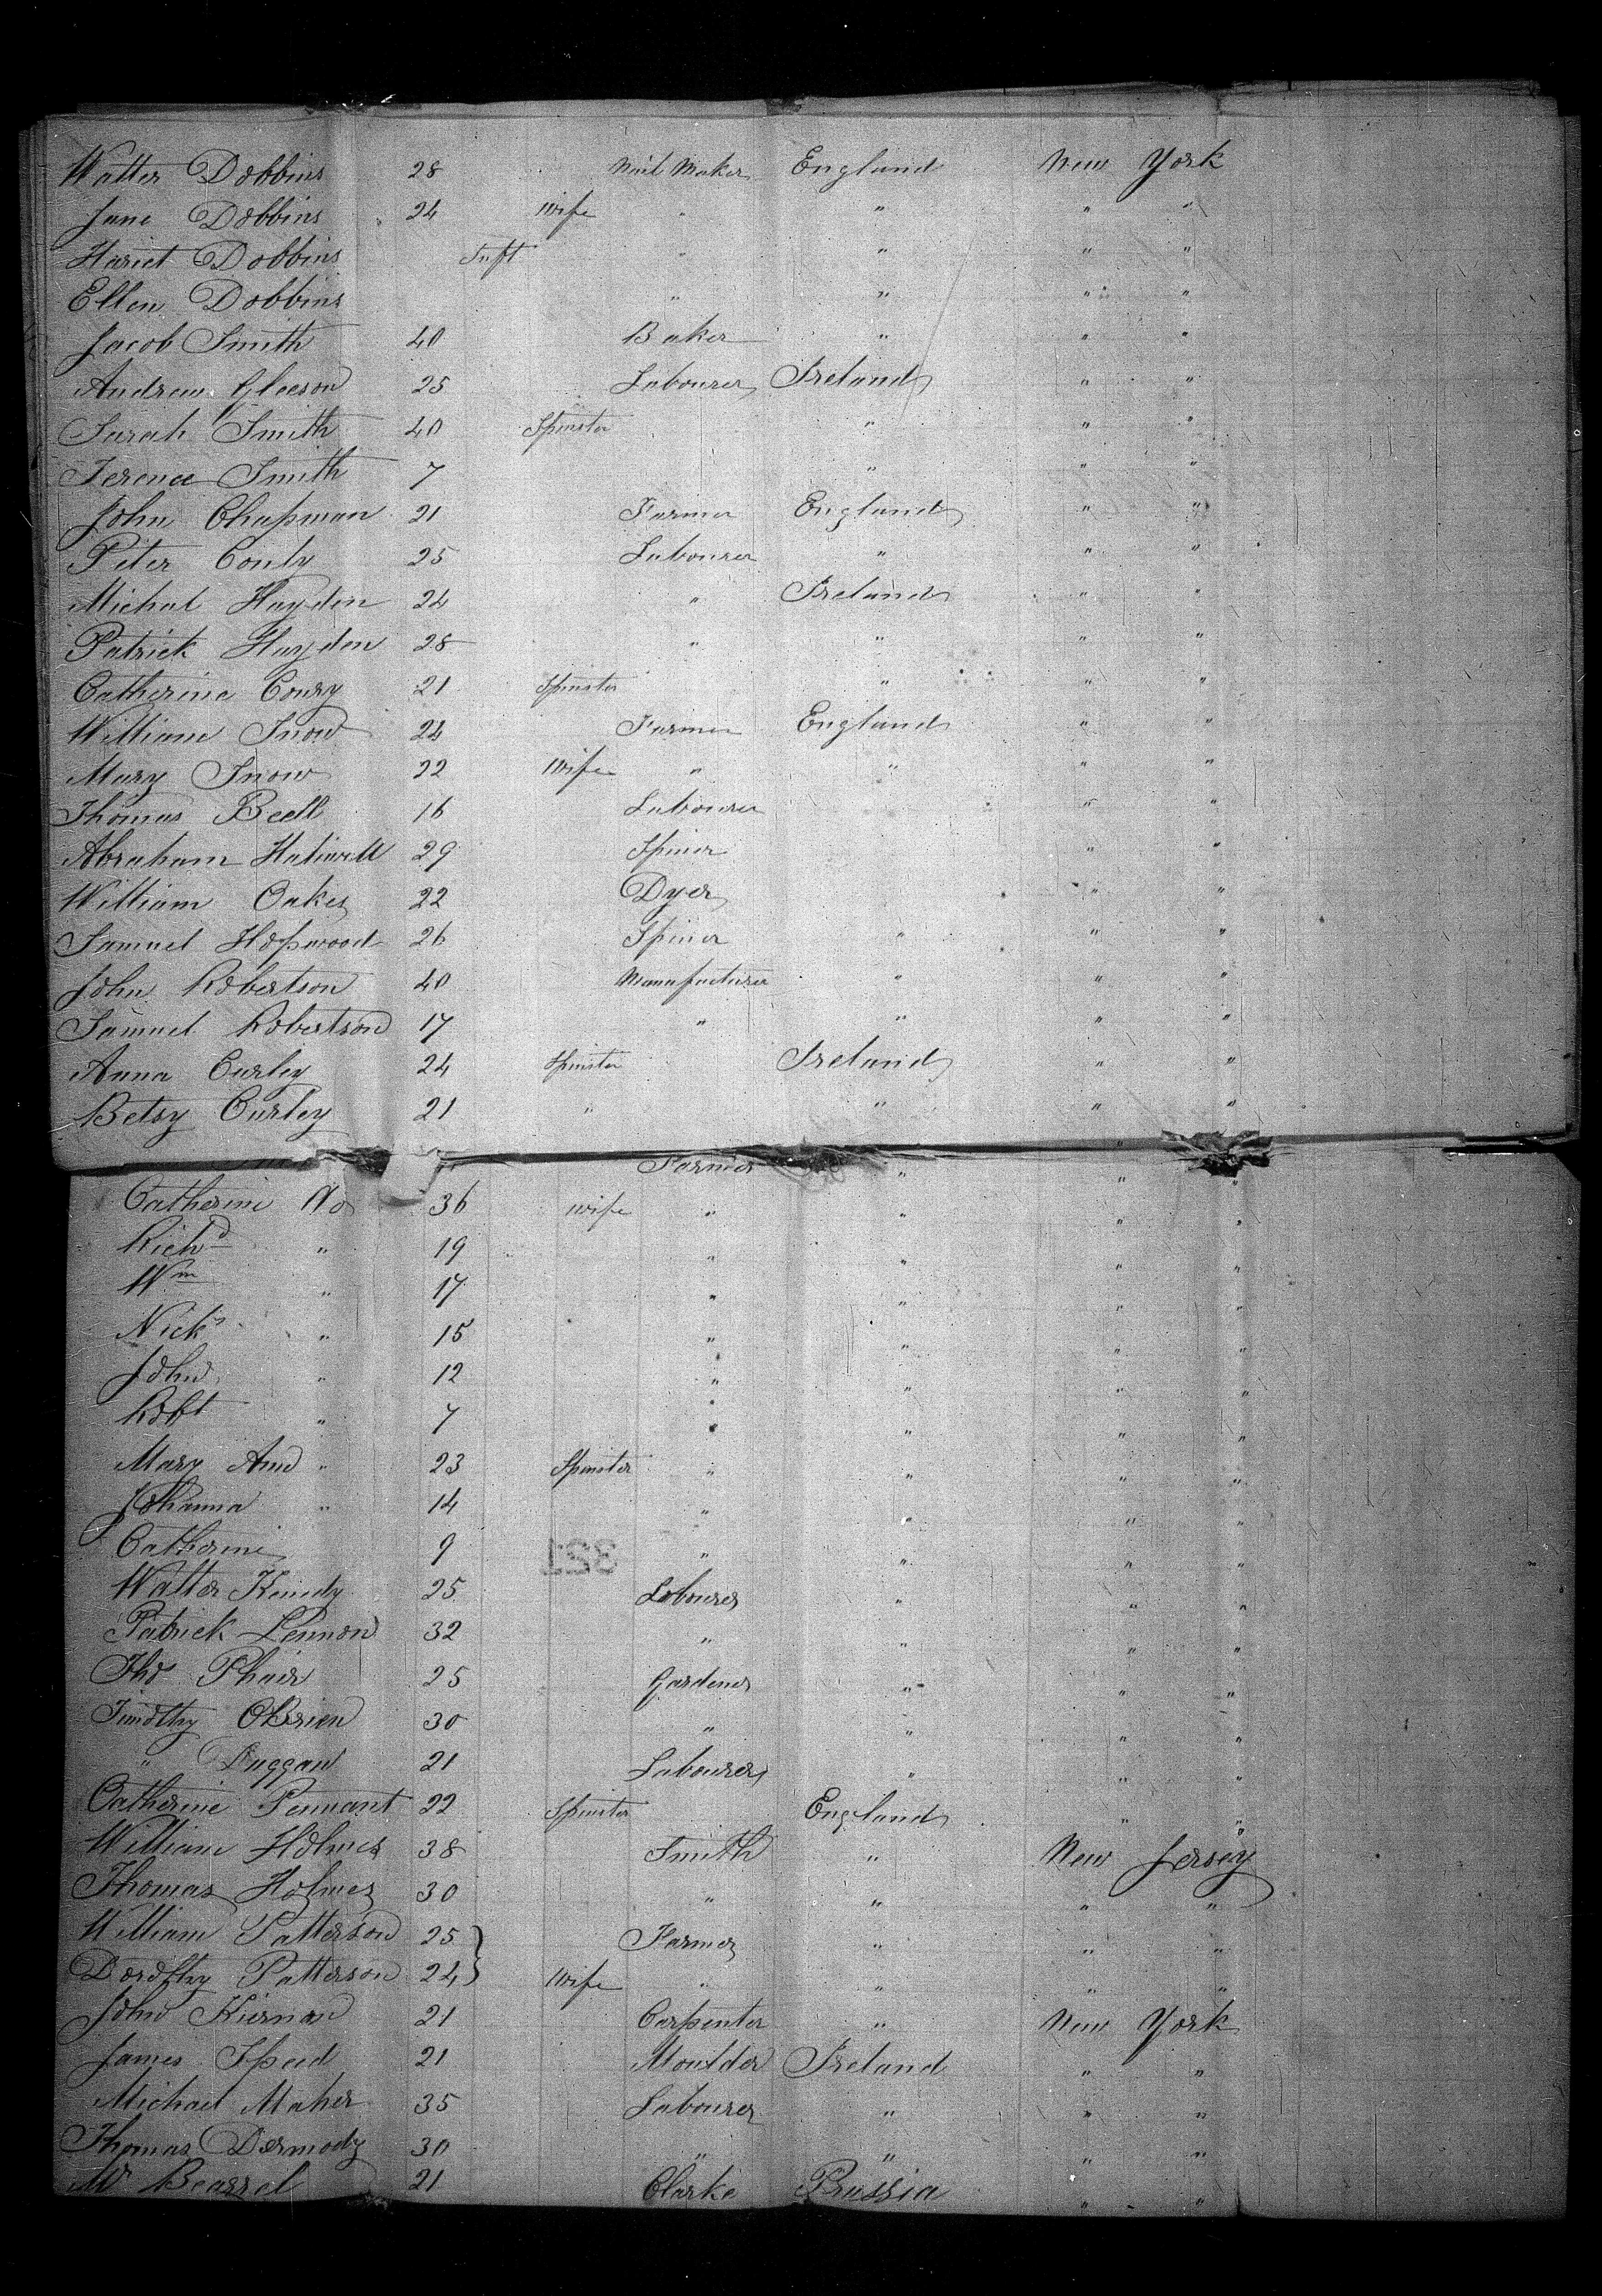 Walter Dobbins 28 Nail Maker England New York
Jane Dobbins 24 wife " " " "
Hariet Dobbins Inft " " " "
Ellen Dobbins " " " "
Jacob Smith 40 Baker " " "
Andrew Gleeson 25 Labourer Ireland " "
Sarah Smith 40 Spinster " " "
Terence Smith 7 " " "
John Chapman 21 Farmer England " "
Peter Conly 25 Labourer " " "
Michal Hayden 24 " Ireland " "
Patrick Hayden 28 " " " "
Catherine Conry 21 Spinster " " "
William Snow 24 Farmer England " "
Mary Snow 22 Wife " " " "
Thomas Beell 16 Labourer " "
Abraham Haliwell 29 Spiner " "
William Oakes 22 Dyer " "
Samuel Hopwood 26 Spiner " " "
John Robertson 40 Manufacturer " " "
Samuel Robertson 17 " " " "
Anna Curley 24 Spinster Ireland " "
Betsy Curley 21 " " " "
Farmer " " "
Catherine Do 36 wife " " " "
Richd " 19 " " " "
Wm " 17 " " " "
Nichs " 15 " " " "
John " 12 " " " "
Robt " 7 " " " "
Mary Ann " 23 Spinster " " " "
Johanna " 14 " " " "
Catherine 9 " " " "
321
Walter Kenedy 25 Labourer " " "
Patrick Lennon 32 " " " "
Thos Phair 25 Gardener " " "
Timothy OBrien 30 " " " "
" Duggan 21 Labourer " " "
Catherine Pennant 22 Spinster England " "
William Holmes 38 Smith " New Jersey
Thomas Holmes 30 " " " "
William Patterson 25 Farmer " " "
Dorothy Patterson 24 Wife " " " "
John Kiernan 21 Carpenter " New York
James Speed 21 Moulder Ireland " "
Michael Maher 35 Labourer " " "
Thomas Dermody 30 " " " "
Mr Bearrel 21 Clarke Prussia " "